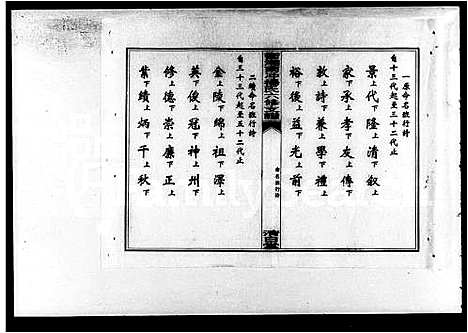 一原命名派行詩
自十三代起至三十二代止
景上代下隆上清下叙上
家下承上孝下友上傳下
敦上詩下兼上學下禮上
裕下後上益下光上前下
氏六修支譜
命名派行詩
清白堂
二續命名派行詩
自三十三代起至五十二代止
金上陵下綿上祖下澤上
英下俊上冠下神上州下
修上德下崇上廉下正上
業下績上炳下千上秋下